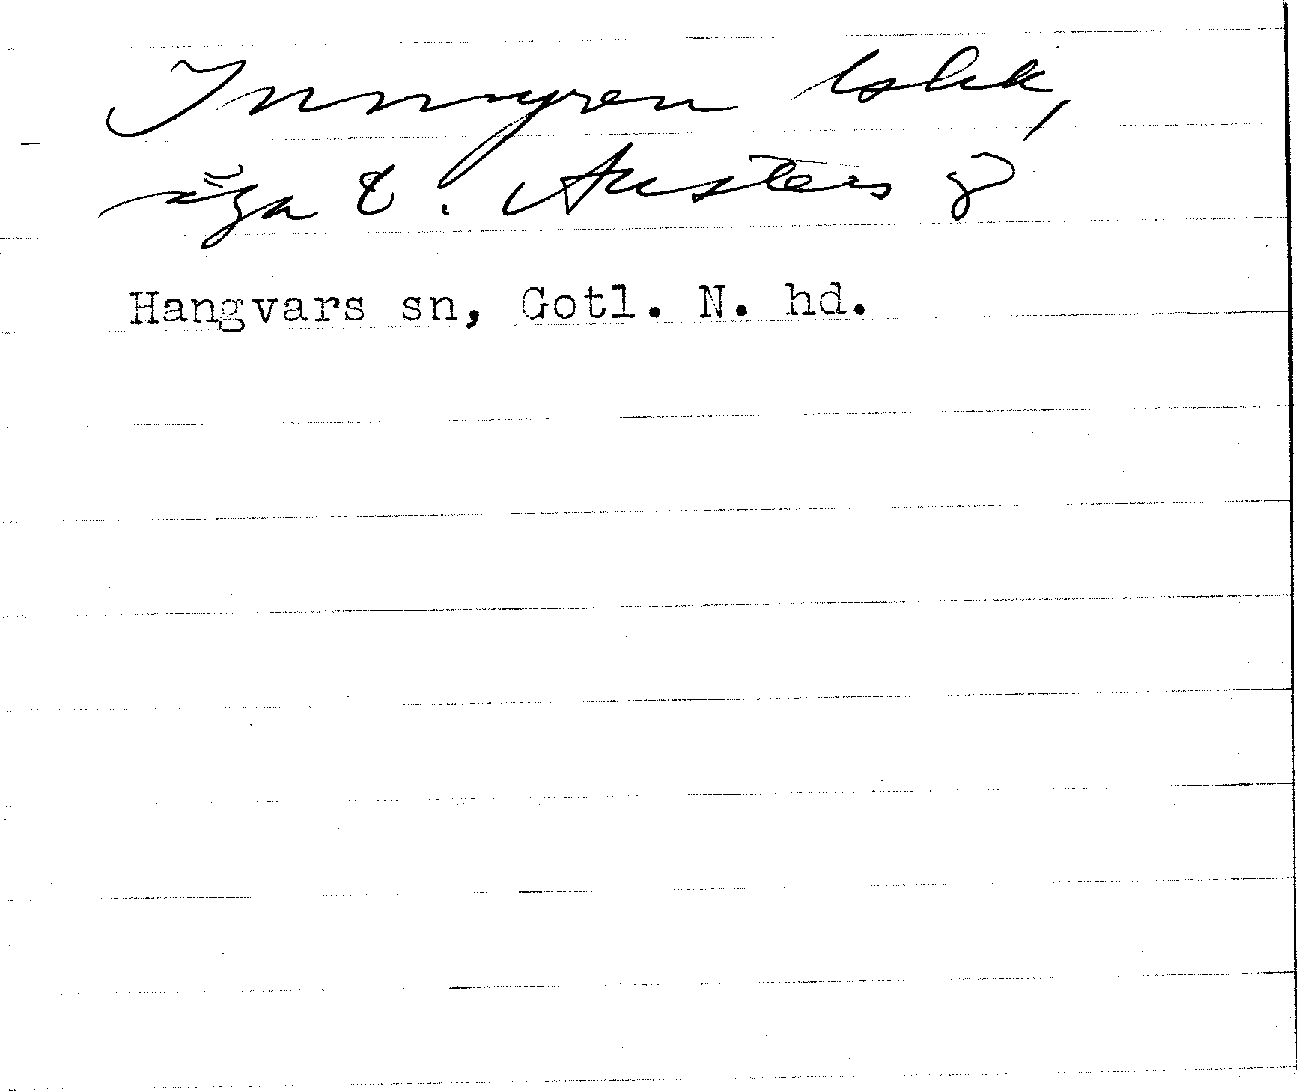 Inmyren
äga t. Austers g
Hangvars sn, Gotl. N. hd.